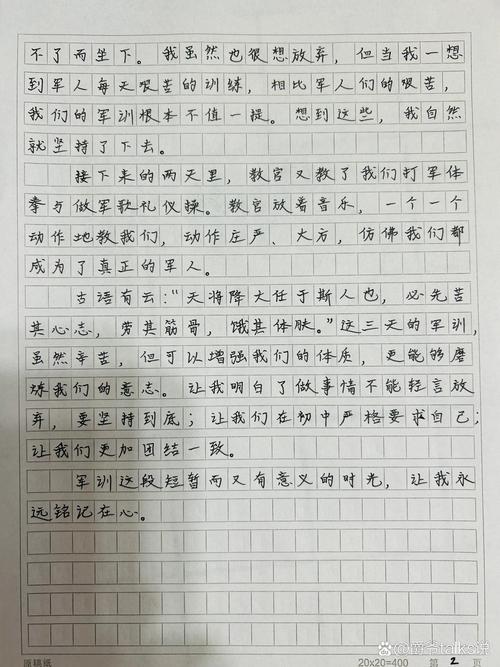 不了而坐下。我虽然也很想放弃，但当我一想
到军人每天艰苦的训练，相比军人们的艰苦，
我们的军训根本不值一提。想到这些，我自然
就坚持了下去。
接下来的两天里，教官又教了我们打军体
拳与做军歌礼仪操。教官放着音乐，一个一个
动作地教我们，动作庄严、大方，仿佛我们都
成为了真正的军人。
古语有云：“天将降大任于斯人也，必先苦
其心志，劳其筋骨，饿其体肤。”这三天的军训，
虽然辛苦，但可以增强我们的体质，更能够磨
炼我们的意志。让我明白了做事情不能轻言放
弃，要坚持到底；让我们在初中严格要求自己；
让我们更加团结一致。
军训这段短暂而又有意义的时光，让我永
远铭记在心。
原稿纸 20×20=400 第 2 页
@爵爷talks说